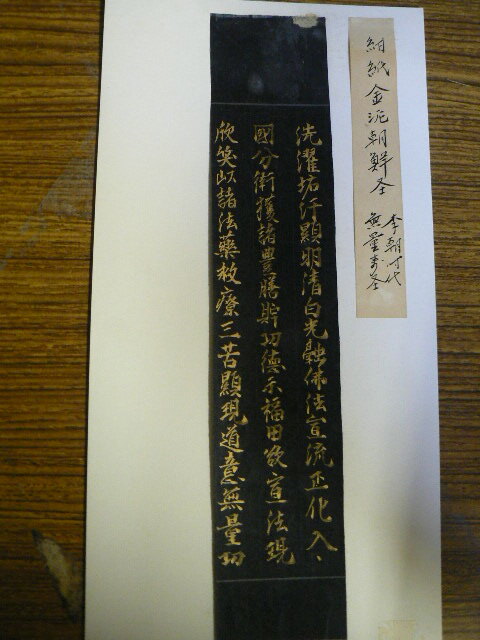 紺紙金泥朝鮮圣
李朝时代
無量寿圣
洗濯垢汙顯明清白光融佛法宣流正化入、
國分衛獲諸豊膳貯功德示福田欲宣法現
欣笑以諸法藥救療三苦顯現道意無量功